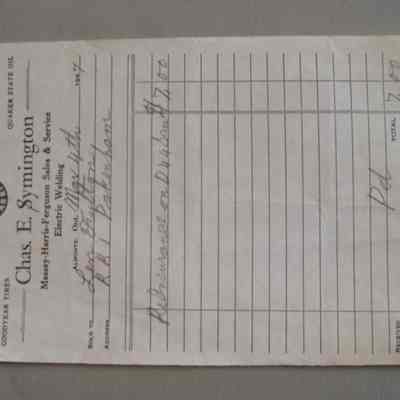 GOODYEAR TIRES QUAKER STATE OIL
Chas. E. Symington
Massey-Harris-Ferguson Sales & Service
Electric Welding
ALMONTE, Ont. Mar 4th 195
SOLD TO Len
ADDRESS RR 1 Pakenham
on $7.00
Pd
RECEIVED TOTAL 7.00